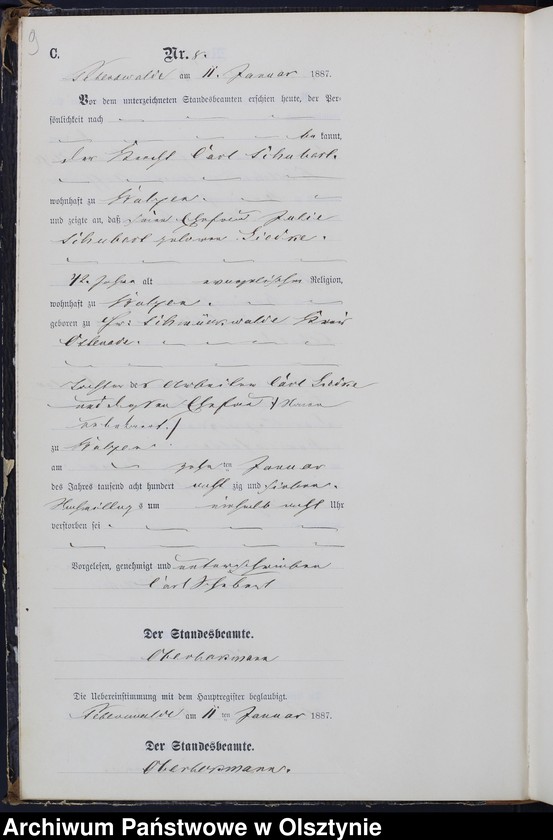 9
C. Nr. 8.
am 11. Januar 1887.
Vor dem unterzeichneten Standesbeamten erschien heute, der Per-
sönlichkeit nach
be kannt,
der Knecht Carl Schubert.
wohnhaft zu
und zeigte an, daß seine Ehefrau Julie
Schubert geborene
42 Jahre alt evangelischer Religion,
wohnhaft zu
geboren zu Kreis
Osterode.
Tochter des Arbeiters Carl
und dessen Ehefrau /Namen
unbekannt./
zu
am zehn ten Januar
des Jahres tausend acht hundert acht zig und sieben
Nachmittags um einhalb acht Uhr
verstorben sei
Vorgelesen, genehmigt und unterschrieben
Carl Schubert
Der Standesbeamte.
Die Uebereinstimmung mit dem Hauptregister beglaubigt.
am 11 ten Januar 1887.
Der Standesbeamte.
Archiwum Państwowe w Olsztynie